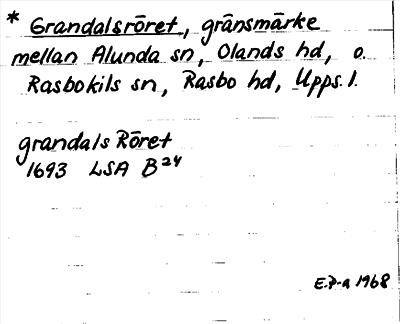 * Grandalsröret, gränsmärke
mellan Alunda sn, Olands hd, o.
Rasbokils sn, Rasbo hd, Upps. l.
grandals Röret
1693 LSA B24
E.P-a 1968